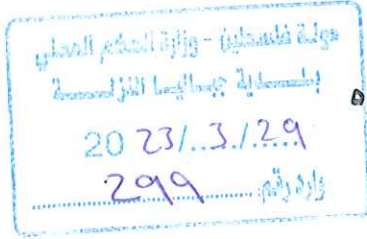 دولة فلسطين - وزارة الحكم المحلي
بلدية جباليا النزلة
2023/3/29
وارد رقم: 299